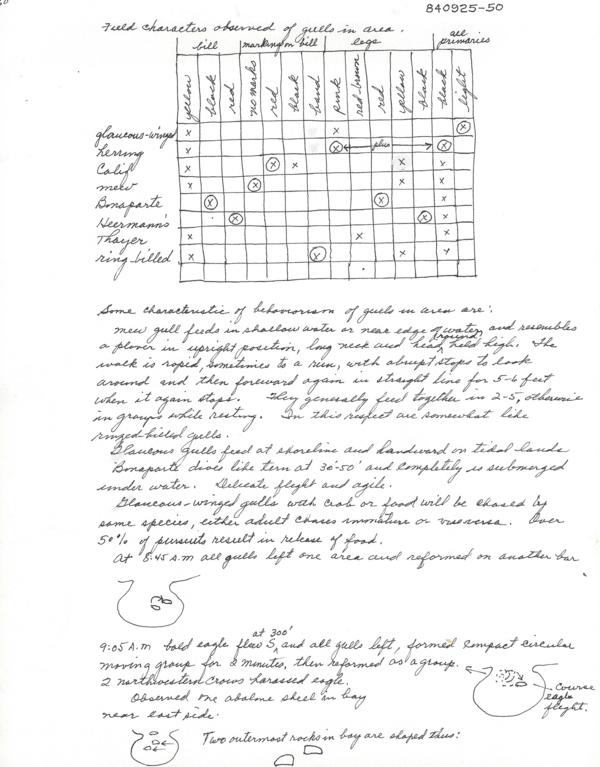 840925-50
Field characters observed of gulls in area.
bill marking on bill legs all primaries
yellow black red no marks red black band pink red-brown red yellow black black light
glaucous-winged x ⓧ
herring x ⓧ ←plus→ ⓧ
Calif x ⓧ x x x
mew x ⓧ x x
Bonaparte ⓧ ⓧ x
Heermann's ⓧ ⓧ x
Thayer x x x
ring-billed x ⓧ x x
Some characteristic of behaviorism of gulls in area are:
mew gull feeds in shallow water or near edge of water, and resembles
a plover in upright position, long neck and round head, held high. The
walk is rapid, sometimes to a run, with abrupt stops to look
around and then foreward again in straight line for 5-6 feet
when it again stops. They generally feed together in 2-5, otherwise
in groups while resting. In this respect are somewhat like
ringed-billed gulls.
Glaucous gulls feed at shoreline and landward on tidal lands
Bonaparte dives like tern at 30'-50' and completely is submerged
under water. Delicate flight and agile.
Glaucous-winged gulls with crab or food will be chased by
same species, either adult chases immature or viseversa. Over
50% of pursuits result in release of food.
At 8:45 A.M all gulls left one area and reformed on another bar
9:05 A.M bald eagle flew S, at 300' and all gulls left, formed compact circular
moving group for 2 minutes, then reformed as a group.
2 northwestern Crows harassed eagle.
Course eagle flight.
Observed one abalone shell in bay
near east side.
Two outermost rocks in bay are shaped thus: